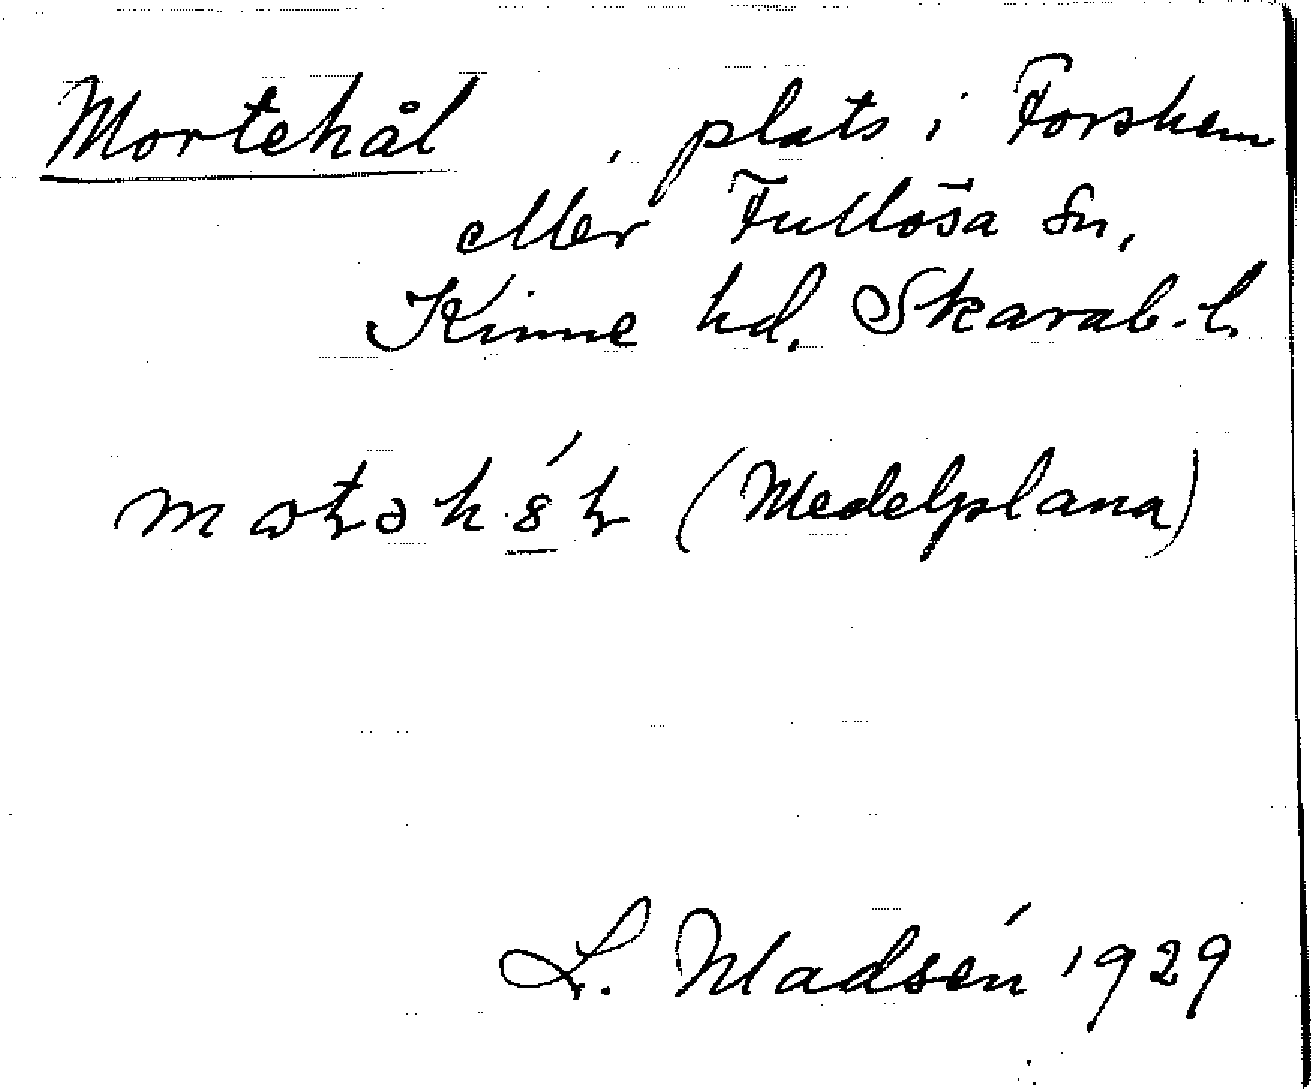 Mortehål , plats i Forshem
eller Fullösa sn,
Kinne hd. Skarab. l.
(Medelplana)
L. Madsén 1929